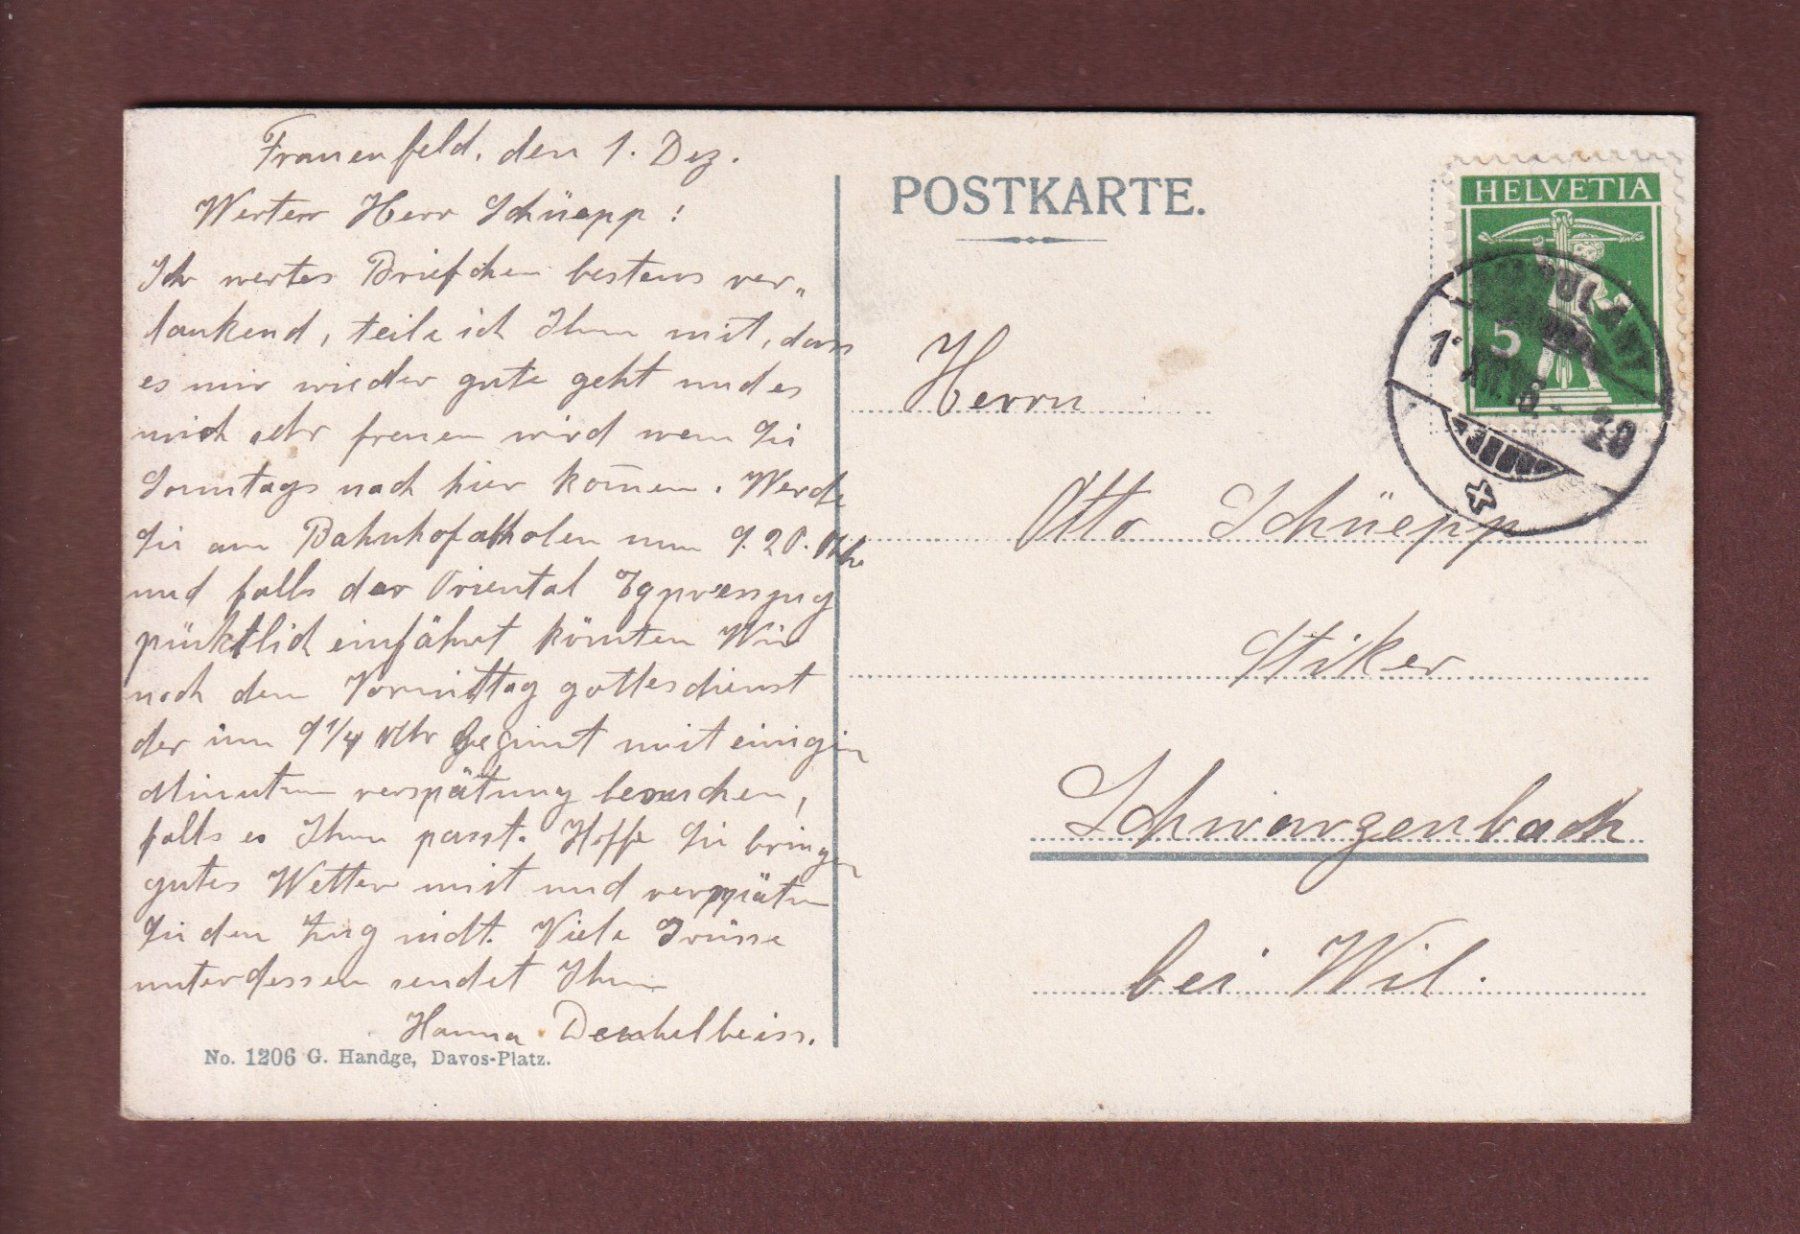 Frauenfeld, den 1. Dez.
Werter Herr Schüepp!
Ihr wertes Briefchen bestens ver„
dankend, teile ich Ihnen mit, dass
es mir wieder gute geht und es
mich sehr freuen wird wenn Sie
Sonntags nach hier kom̅en. Werde
Sie am Bahnhof abholen um 9.20. Uhr
und falls der Oriental Expresszug
pünktlich einfährt könnten Wir
noch den Vormittag gottesdienst
der um 9 1/4 Uhr Beginnt mit einigen
Minuten verspätung besuchen,
falls es Ihnen passt. Hoffe Sie bringen
gutes Wetter mit und verspäten
Sie den Zug nicht. Viele Grüsse
unterdessen sendet Ihnen
Hanna
No. 1206 G. Handge, Davos-Platz.
POSTKARTE.
Herrn
Otto Schüepp
Stiker
Schwarzenbach
bei Wil.
HELVETIA
5